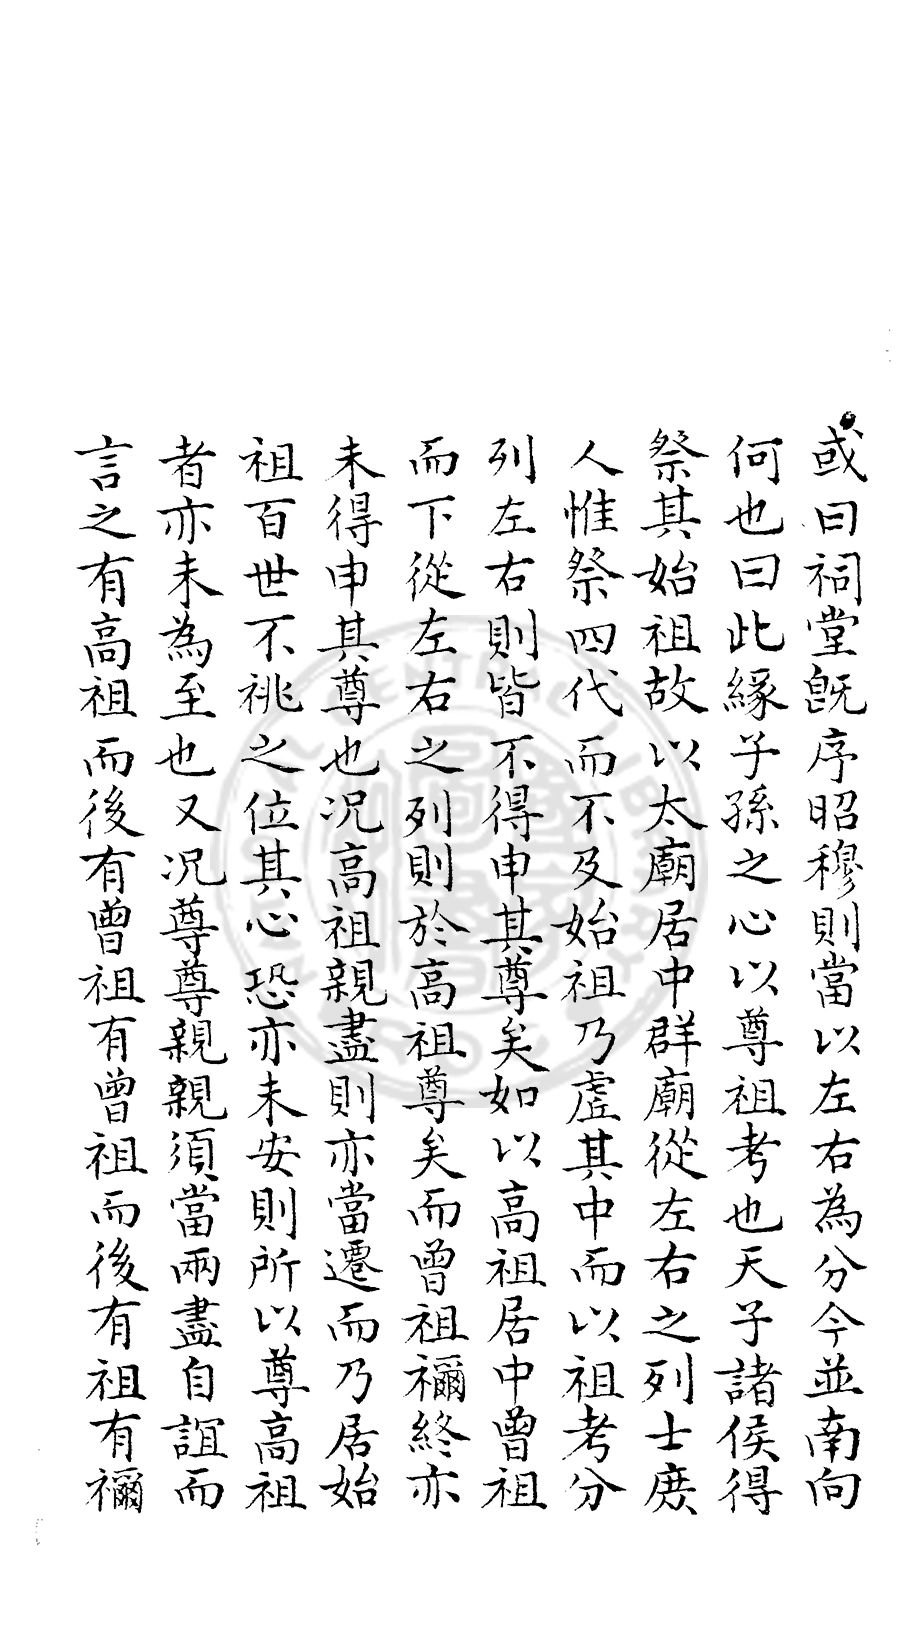 或曰祠堂旣序昭穆則當以左右為分今並南向
何也曰此緣子孫之心以尊祖考也天子諸侯得
祭其始祖故以太廟居中群廟從左右之列士庶
人惟祭四代而不及始祖乃虛其中而以祖考分
列左右則皆不得申其尊矣如以高祖居中曾祖
而下從左右之列則於高祖尊矣而曾祖禰終亦
未得申其尊也况高祖親盡則亦當遷而乃居始
祖百世不祧之位其心恐亦未安則所以尊高祖
者亦未為至也又况尊尊親親須當兩盡自誼而
言之有高祖而後有曾祖有曾祖而後有祖有禰